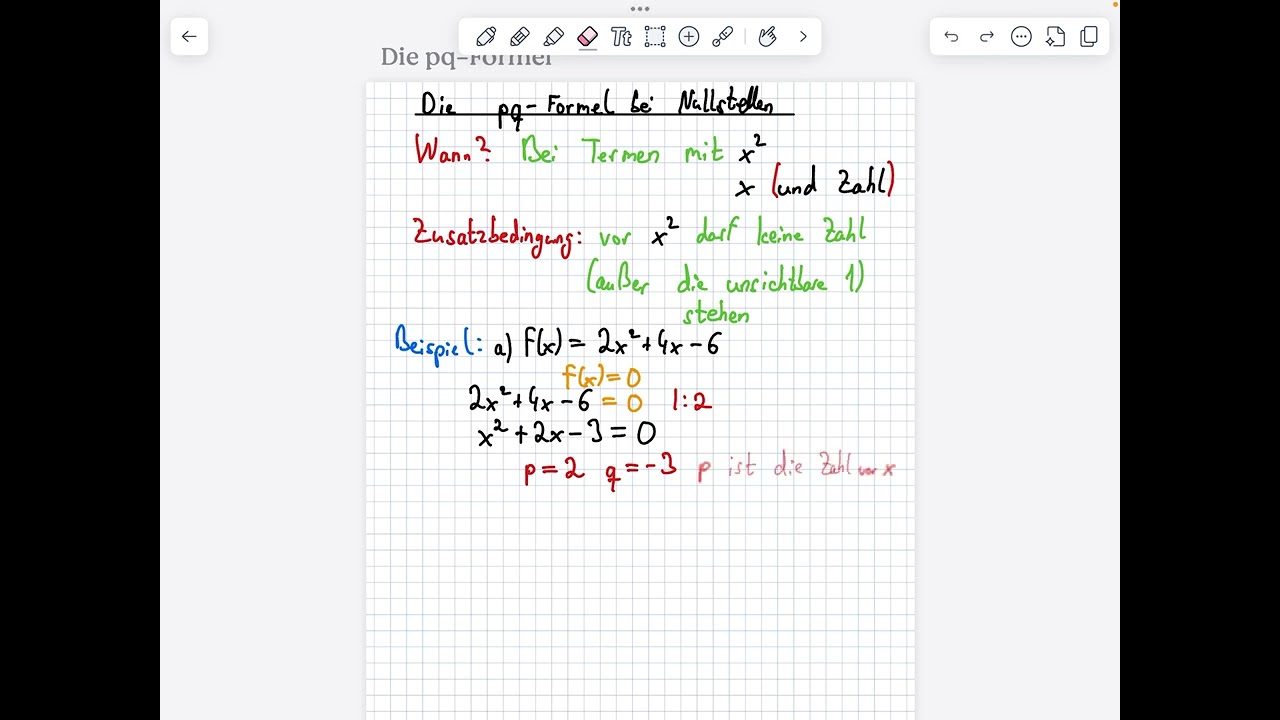 Die pq-Formel
Die pq-Formel bei Nullstellen
Wann? Bei Termen mit x²
x (und Zahl)
Zusatzbedingung: vor x² darf keine Zahl
(außer die unsichtbare 1)
stehen
Beispiel: a) f(x) = 2x² + 4x - 6
f(x) = 0
2x² + 4x - 6 = 0 |:2
x² + 2x - 3 = 0
p = 2 q = -3 p ist die Zahl vor x